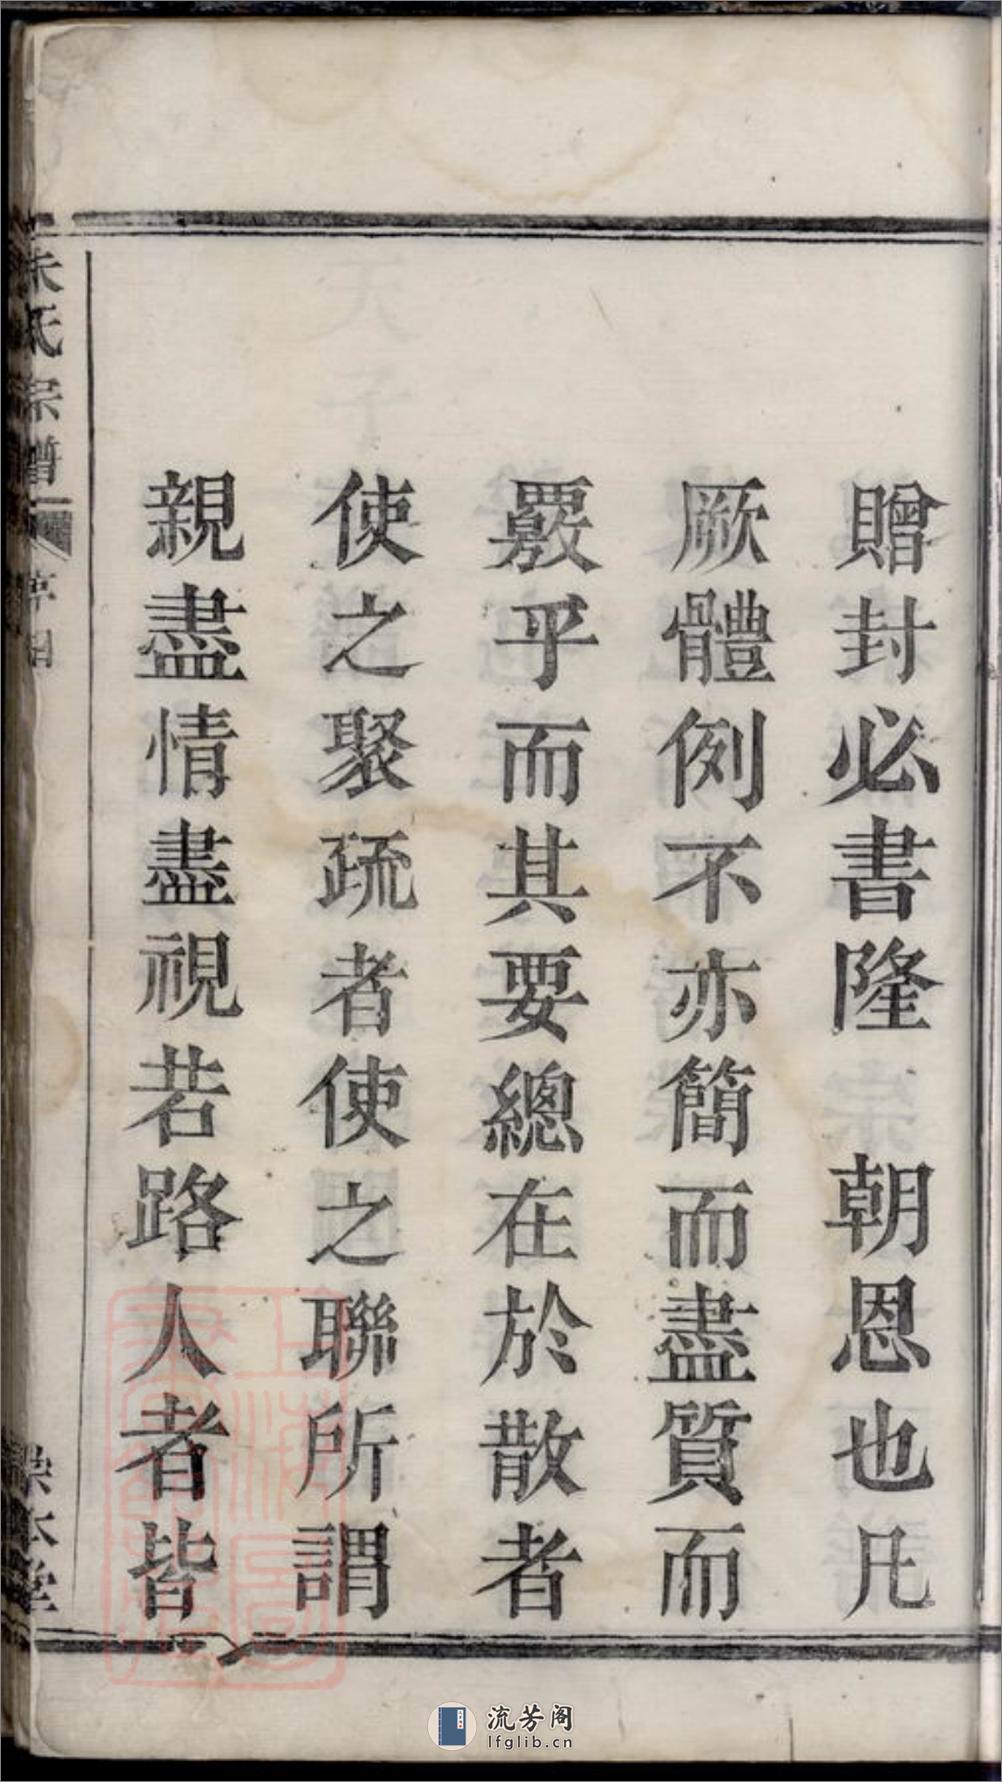 贈封必書隆　朝恩也凡
厥體例不亦簡而盡質而
覈乎而其要總在於散者
使之聚疏者使之聯所謂
親盡情盡視若路人者皆
朱氏宗譜
流芳阁
lfglib.cn